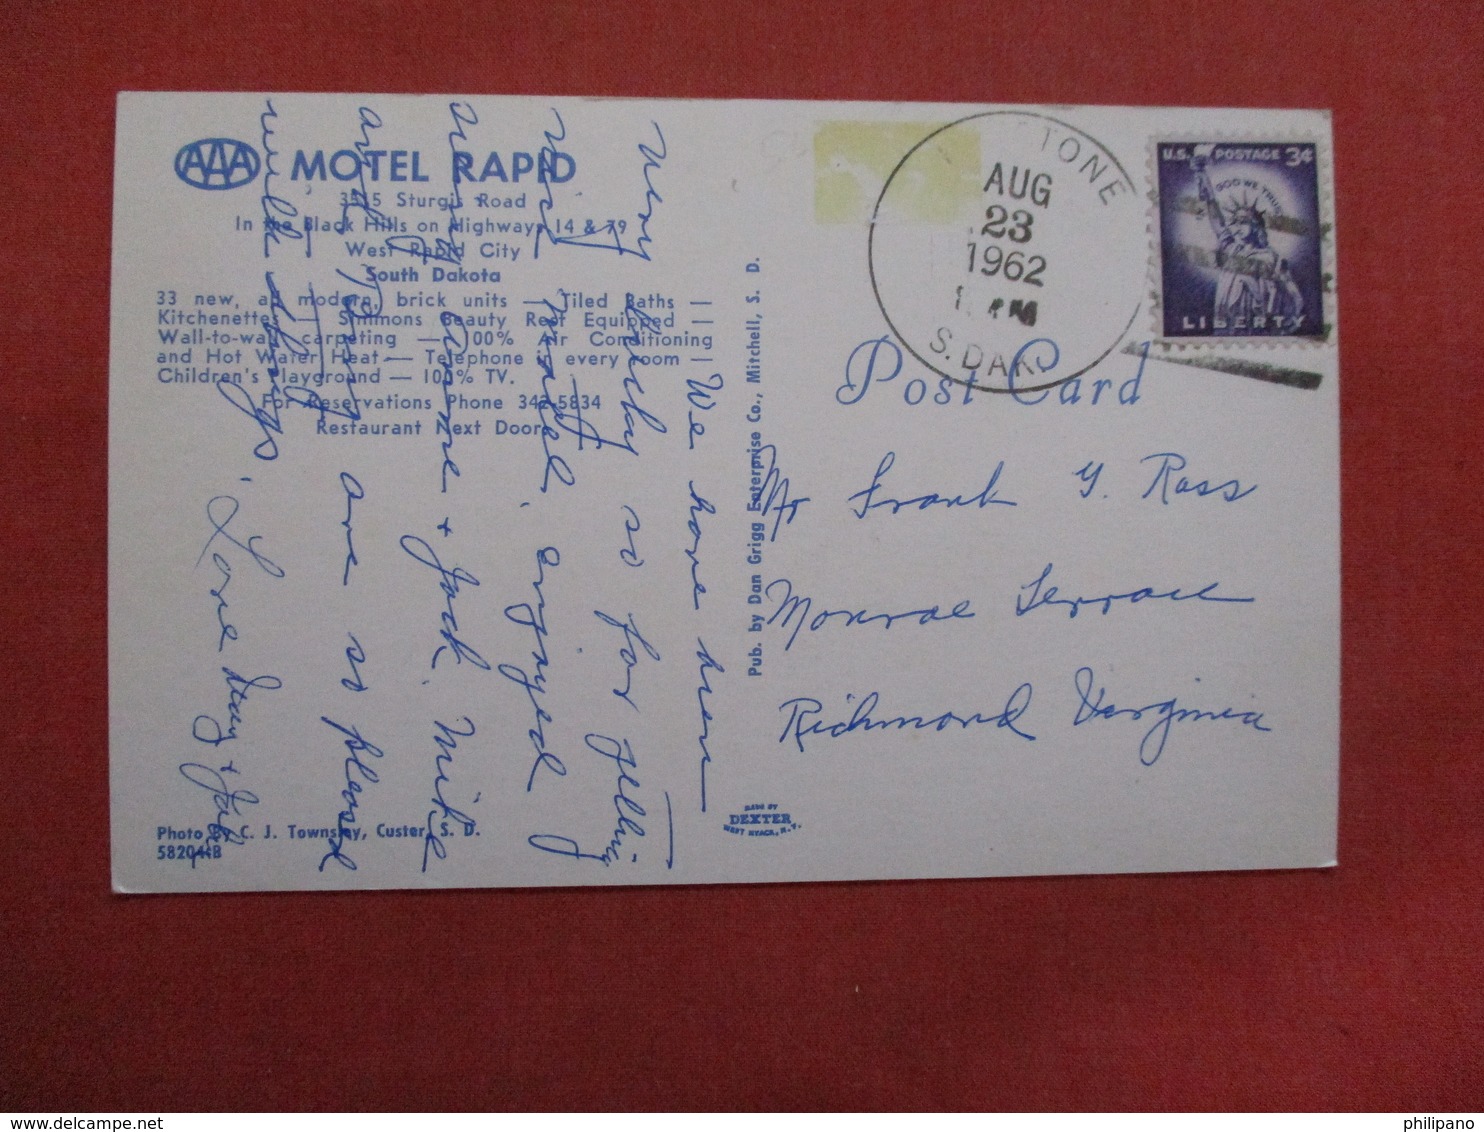 AAA MOTEL RAPID
3515 Sturgis Road
In the Black Hills on Highways 14 & 79
West Rapid City
South Dakota
33 new, all modern, brick units — Tiled Baths —
Kitchenettes — Simmons Beauty Rest Equipped —
Wall-to-wall carpeting — 100% Air Conditioning
and Hot Water Heat — Telephone in every room —
Children's Playground — 100% TV.
For Reservations Phone 342-5834
Restaurant Next Door
Photo by C. J. Townsley, Custer, S. D.
58204-B
We have been
very lucky so far getting
nice motel. enjoyed
seeing + Jack. Mike
and are so pleased
with things.
Love +
Pub. by Dan Grigg Enterprise Co., Mitchell, S. D.
MADE BY
DEXTER
WEST NYACK, N.Y.
TONE
AUG
23
1962
M
S. DAK.
U.S. POSTAGE 3¢
IN GOD WE TRUST
LIBERTY
Post Card
Mr Frank G. Ross
Monroe Terrace
Richmond Virginia
philipano